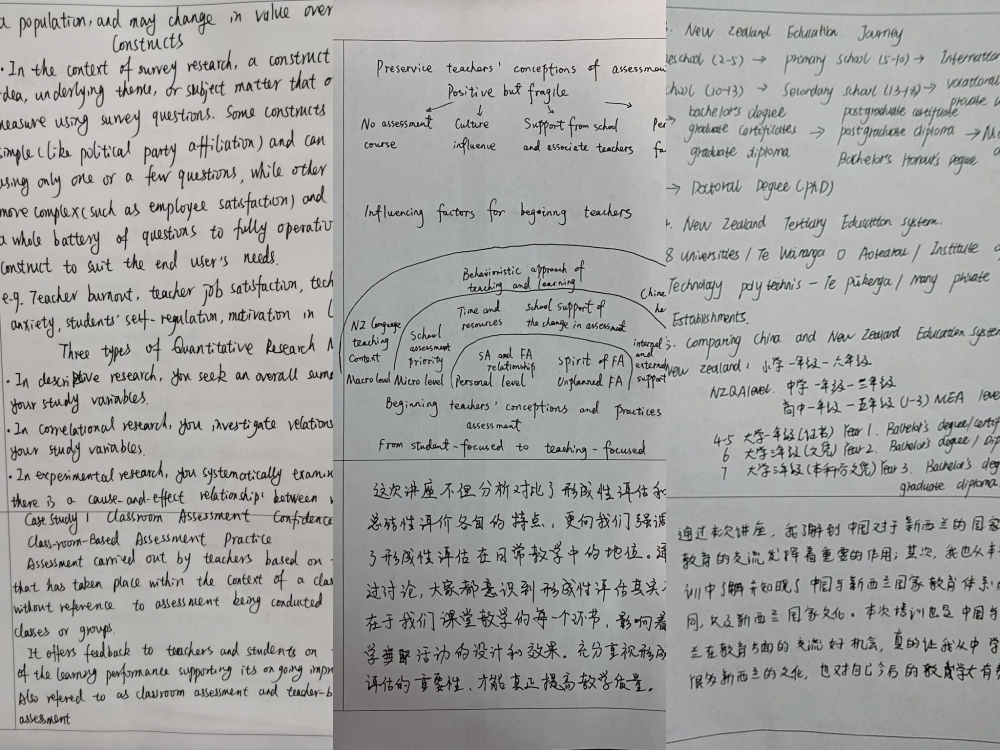 a population, and may change in value over
Constructs
· In the context of survey research, a construct
idea, underlying theme, or subject matter that o
measure using survey questions. Some constructs
simple (like political party affiliation) and can
using only one or a few questions, while other
more complex (such as employee satisfaction) and
a whole battery of questions to fully operati
construct to suit the end user's needs.
e.g. Teacher burnout, teacher job satisfaction, tech
anxiety, students' self-regulation, motivation in
Three types of Quantitative Research
· In descriptive research, you seek an overall summ
your study variables.
· In correlational research, you investigate relations
your study variables.
· In experimental research, you systematically examin
there is a cause-and-effect relationship between
Case Study 1 Classroom Assessment Confidence
Class-room-Based Assessment Practice
Assessment carried out by teachers based on
that has taken place within the context of a clas
without reference to assessment being conducted
classes or groups.
It offers feedback to teachers and students on
of the learning performance supporting its ongoing impr
Also refered to as classroom assessment and teacher-b
assesment
Preservice teachers' conceptions of assessment
Positive but fragile
No assessment course
Culture influence
Support from school and associate teachers
Per
fa
Influencing factors for begoinng teachers
Behavioristic approach of teaching and learning
Time and resources
school support of the change in assessment
Chine
he
NZ language teaching Context
School assessment priority
SA and FA relationship
Spirit of FA
internal and external support
Macro level
Micro level
Personal level
Unplanned FA
Beginning teachers' conceptions and practices
assessment
From student-focused to teaching-focused
这次讲座不但分析对比了形成性评估和
总结性评价各自的特点，更向我们强调
了形成性评估在日常教学中的地位。通
过讨论，大家都意识到形成性评估其实
在于我们课堂教学的每一个环节，影响着
学 活动的设计和效果。充分重视形成
评估的重要性，才能真正提高教学质量。
3. New Zealand Education Journey
eschool (2-5) → primary school (5-10) → Intermedia
chool (10-13) → Secondary school (13-18) → vocational
private
→ bachelor's degree postgraduate certificate
graduate certificates → postgraduate diploma →
graduate diploma Bachelor's Honour's Degree
→ Doctoral Degree (PhD)
4. New Zealand Tertiary Education system.
8 universities / Te Wānanga O Aotearoa / Institute of
Technology polytechnis - Te pūkenga / many private
Establishments.
5. Comparing China and New Zealand Education System
New Zealand: 小学一年级-六年级
NZQA level. 中学一年级-三年级
高中一年级-五年级 (1-3) NCEA level
4-5 大学一年级(证书) Year 1. Bachelor's degree/certif
6 大学二年级(文凭) Year 2. Bachelor's degree / Dip
7 大学三年级(本科后文凭) Year 3. Bachelor's deg
graduate diploma
通过本次讲座，我了解到中国对于新西兰的国家
教育的交流发挥着重要的作用；其次，我也从本
训中了解并知晓了中国与新西兰国家教育体系的
同，以及新西兰国家文化。本次培训也是中国与
兰在教育方面的交流好机会，真的让我从中学
很多新西兰的文化，也对自己今后的教育学大有